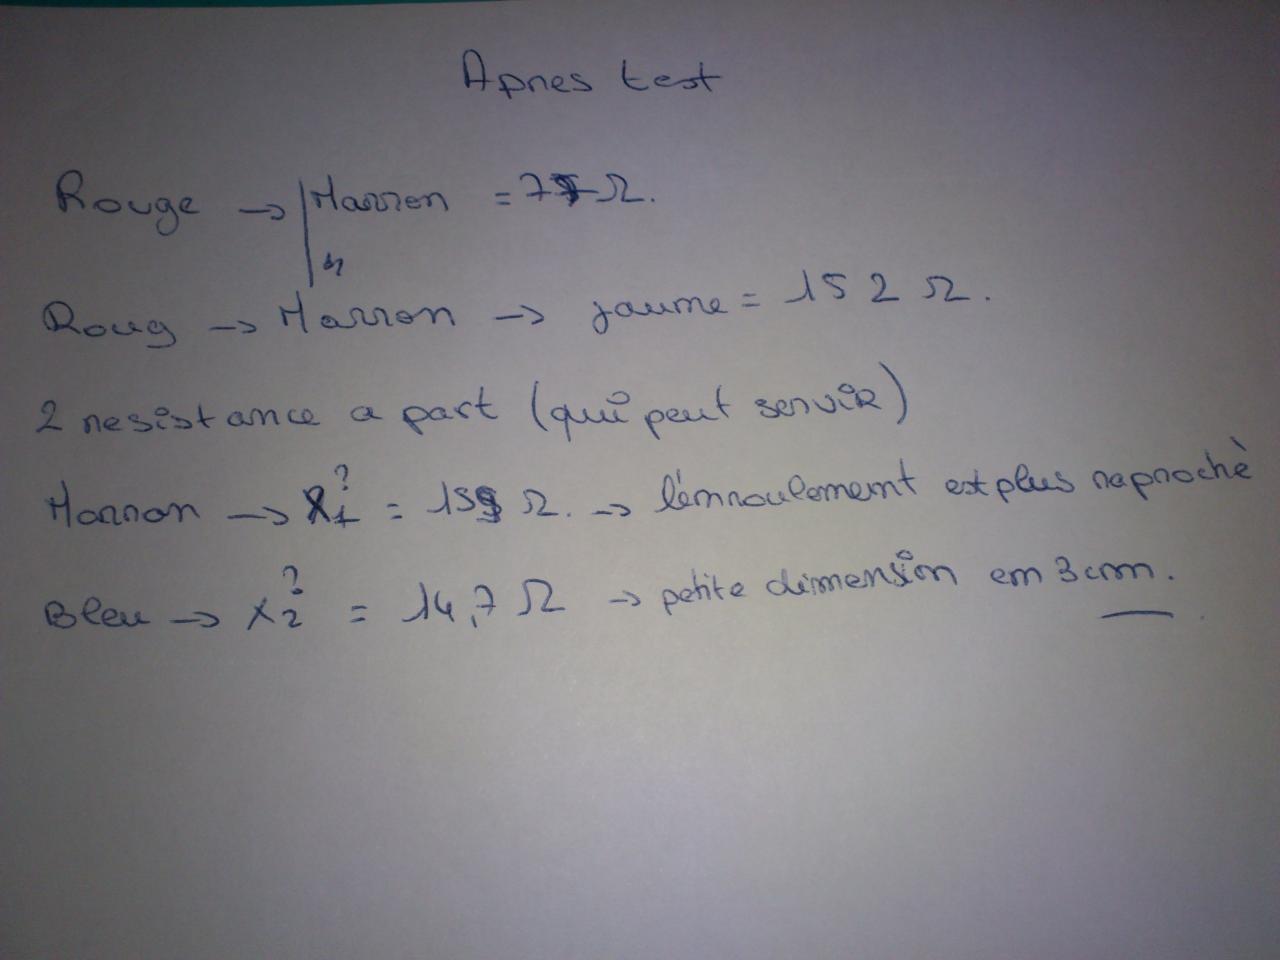 Apres test
Rouge → Marron = 7 Ω.
Roug → Marron → jaune = 152 Ω.
2 resistance a part (qui peut servir)
Marron → X1? = 15 Ω. → l'enroulement est plus raproché
Bleu → X2? = 14,7 Ω → petite dimension en 3 cm.